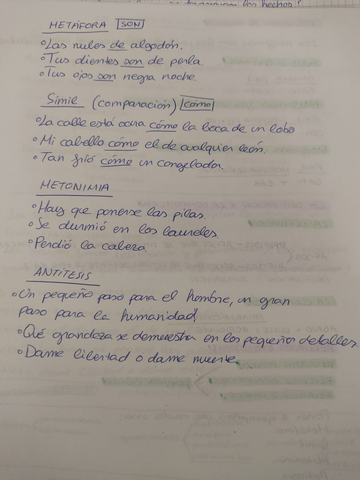 los hechos?
METÁFORA SON
Las nubes de algodón.
Tus dientes son de perla.
Tus ojos son negra noche.
Símil (comparación) como
La calle está oscura cómo la boca de un lobo
Mi cabello cómo el de cualquier león.
Tan frió cómo un congelador.
METONIMIA
Hays que ponerse las pilas.
Se durmió en los laureles.
Perdió la cabeza
ANTÍTESIS
Un pequeño paso para el hombre, un gran
paso para la humanidad
Qué grandeza se demuestra en los pequeños detalles.
Dame libertad o dame muerte.